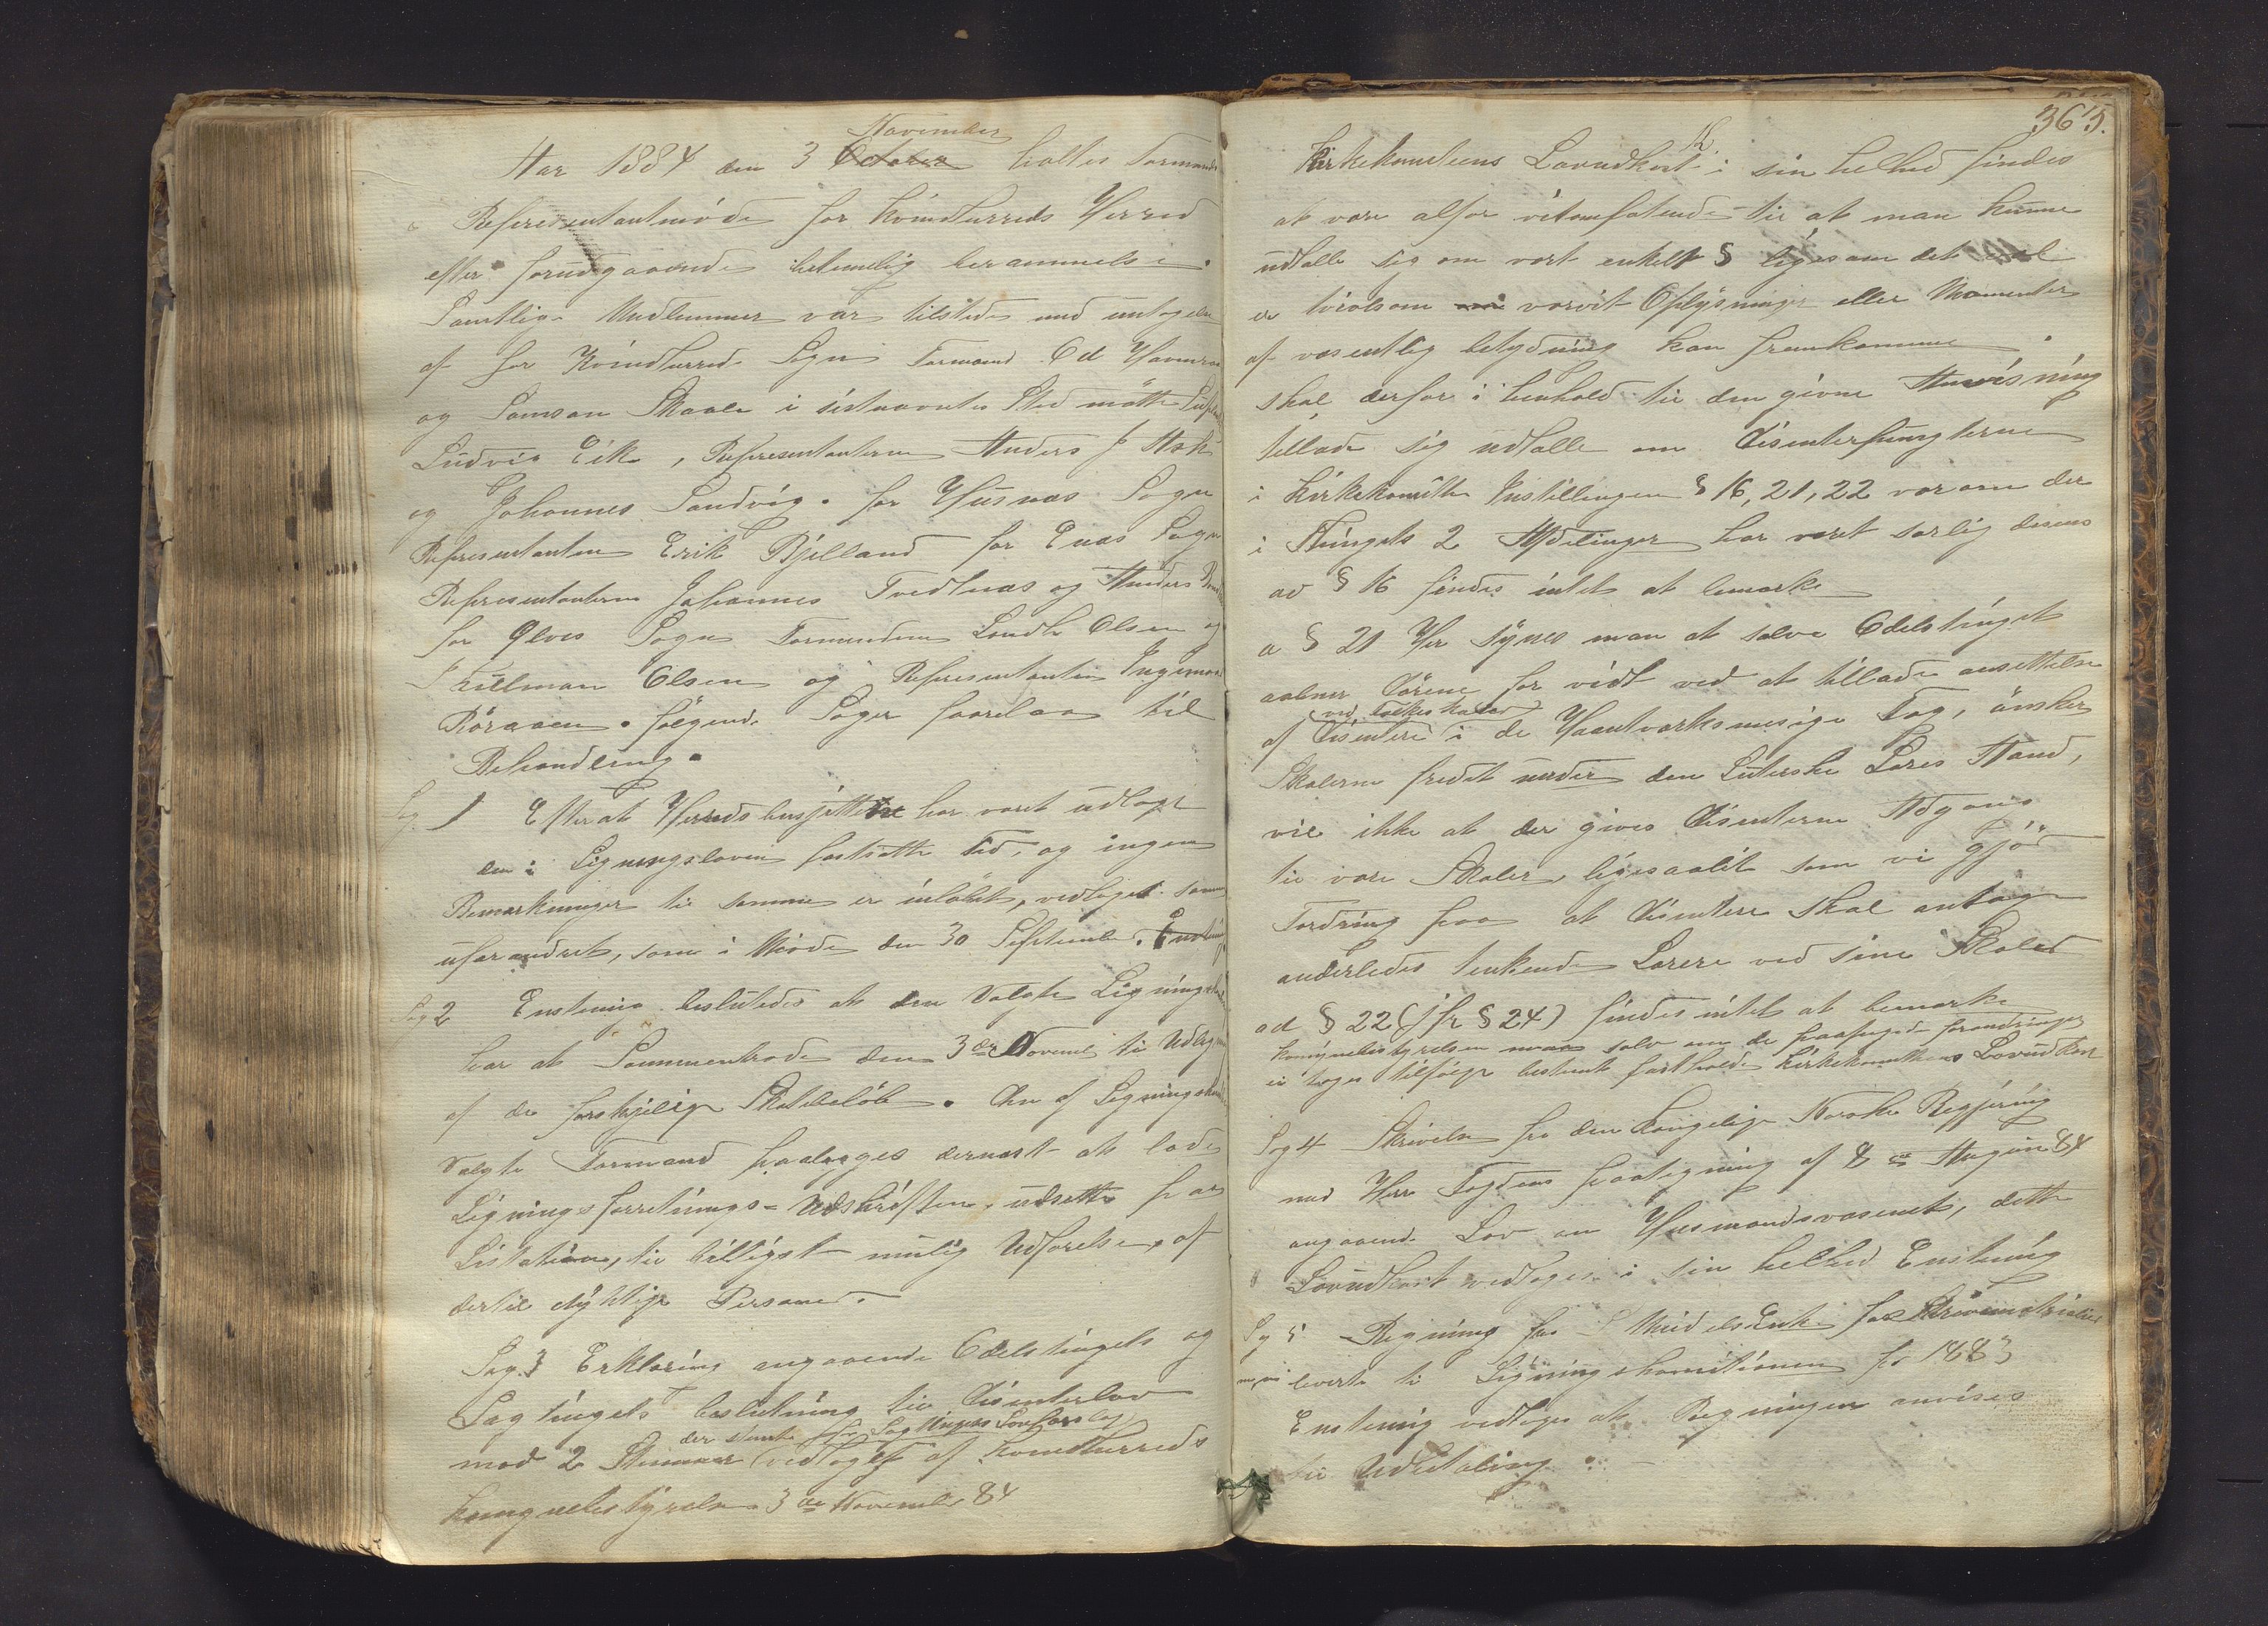 November
Aar 1884 den 3 October holtes Formands
Representantmöde for Kvindherreds Herred
efter forudgaaende betimelig berammelse.
Samtlige Medlemmer var tilstede med untagelse
af for Kvindherred Sogn Formand Od Havneraa
og Samson Skaale i sistnævntes Sted mötte Suplent
Ludvig Eik, Representanterne Anders J Ask
og Johannes Sandvig. for Husnæs Sogn
Representanten Erik Bjelland for Enæs Sogn
Representanterne Johannes Tvedtnæs og Anders
for Ølves Sogn Formændene Londh Olsen og
Skulman Olsen og Representanten Ingemar
Röraaen. følgende Sager foorelaa til
Behandling.
Sag. 1 Efterat Herredsbusjettene har været udlagt
den i Ligningsloven fastsatte Tid, og ingen
Bemærkninger til samme er inlöbet, vedtaget samme
uforandret, som i Möde den 30 September. Enstemig
Sag 2 Enstemig beslutedes at den Valgte Ligningskom
har at Sammentræde den 3die Novemb til Udligning
af de forskjelige Skattebelöb. Den af Ligningskom
Valgte Formand paalægges dernæst at lade
Ligningsforretnings-Udskriften, udsætte paa
Lisitation, til billigst mulig Udförelse, af
dertil dygtige Personer.
Sag. 3 Erklæring angaaende Odelstingets og
Lagtingets beslutning til Disenterlov
der stemte for Lagtingets Lovforslag
mod 2 Stemmer vedtaget af Kvindherreds
komunebestyrelse 3die November 84
365.
Kirkekomiteens Lovudkast i sin helhed findes
at være alfor vitomfatende til at man kunne
udtalle sig om vært enkelt § ligesom det
er tvivlsom vorvit Oplysninger eller Momenter
af væsentlig betydning kan fremkomme.
skal derfor i henhold til den givne Anvisning
tillade sig udtalle om Disenterpungterne
i Kirkekomitte Instillingen § 16, 21, 22 vorom der
i Tingets 2 Afdelinger har været særlig disens
ad § 16 findes intet at bemærke
a § 21 Her synes man at selve Odelstinget
aabner Dörene for vidt ved at tillade ansettelse
ved Folkeskoler
af Disentere i de Haantværksmesige Fag, önsker
Skolerne fredet under den Luterske Læres Aand,
vil ikke at der gives Disenterne Adgang
til vore Skoler, ligesaalit som vi gjör
Fordring paa at Disentere skal antage
anderledes tenkende Lærere ved sine Skoler
ad § 22 (jfr § 24) findes intet at bemærke
komunebestyrelsen maa selv om de paapegede forandringer
ei tages tilfölge bestemt fastholde Kirkekomitteens Lovudkast
Sag 4 Skrivelse fra den Kongelige Norske Regjering
med Herr Fogdens paategning af 8de August 84
angaaende Lov om Husmandsvæsenet, dette
Lovudkast vedtages i sin helhed Enstemig
Sag 5 Regning fra S Mikkelsen Eik for Skrivematrialier
leverte til Ligningskomitionen for 1883
Enstemig vedtages at Regningen anvises
til Udbetaling.